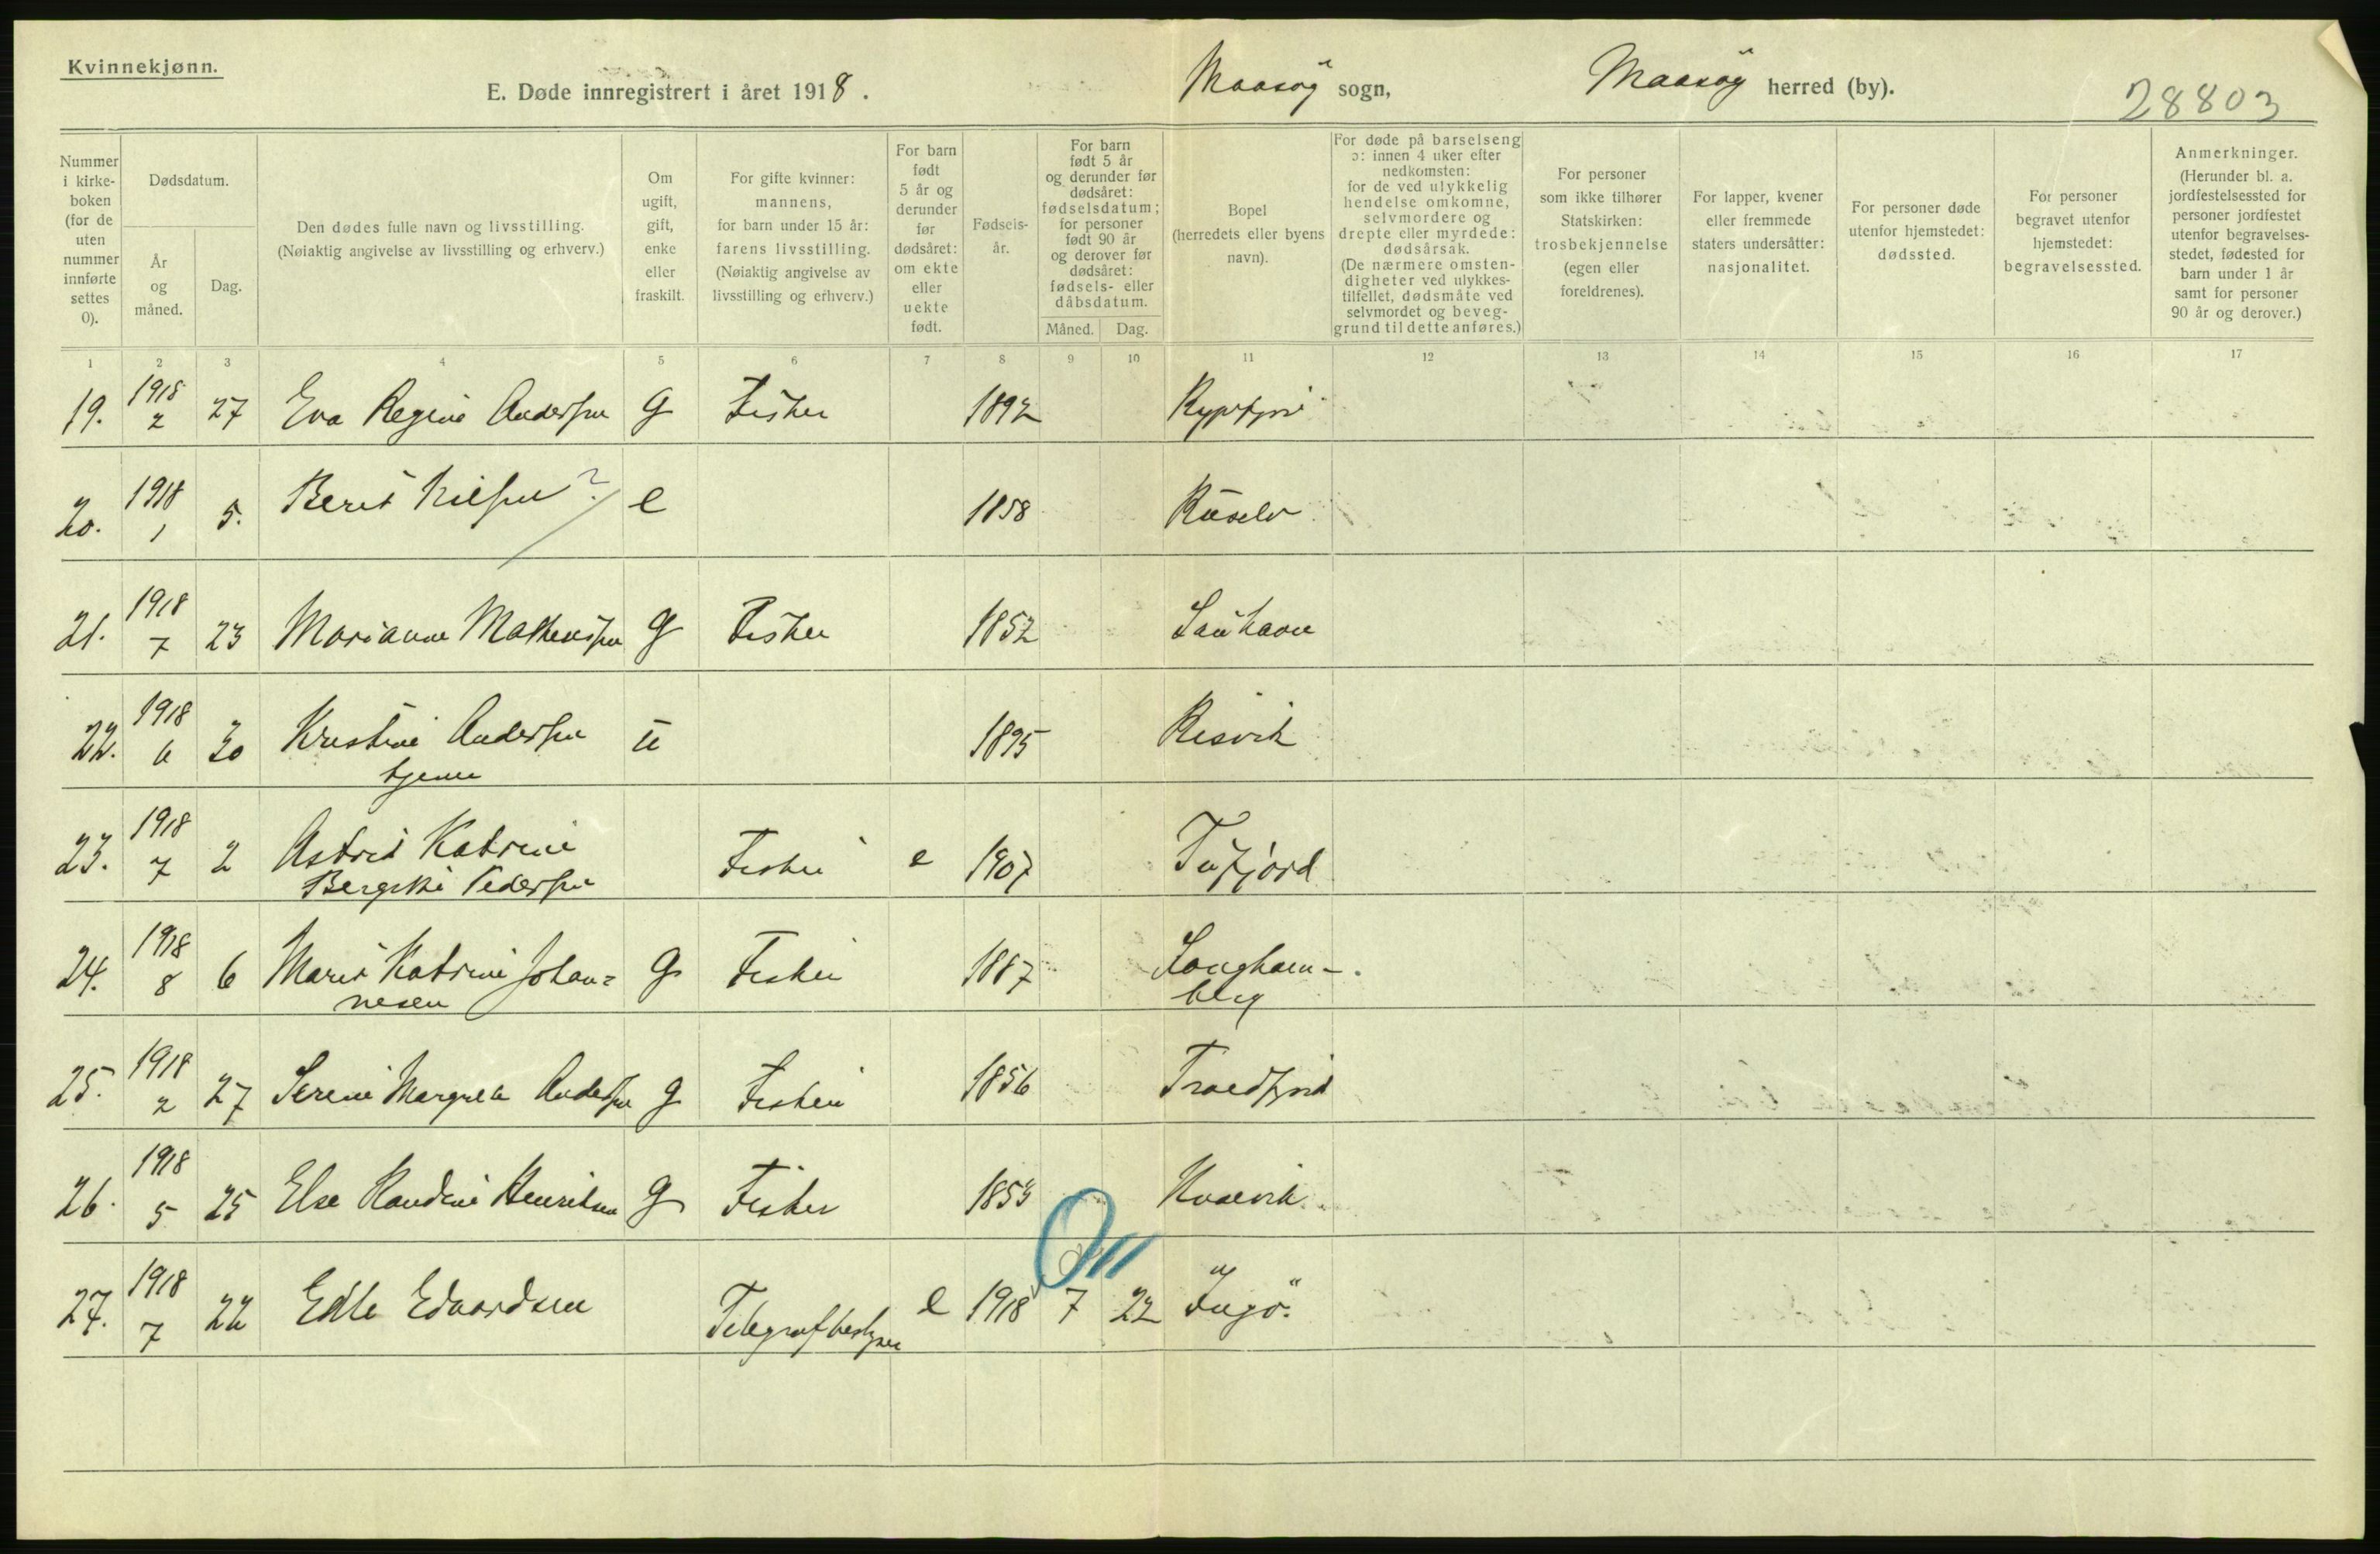 Kvinnekjønn.
E. Døde innregistrert i året 1918. Maasøy sogn, Maasøy herred (by). 28803
Nummer i kirke-boken (for de uten nummer innførte settes 0).
Dødsdatum.
År og måned.
Dag.
Den dødes fulle navn og livsstilling.
(Nøiaktig angivelse av livsstilling og erhverv.)
Om ugift, gift, enke eller fraskilt.
For gifte kvinner: mannens, for barn under 15 år: farens livsstilling. (Nøiaktig angivelse av livsstilling og erhverv.)
For barn født 5 år og derunder før dødsåret: om ekte eller uekte født.
Fødsels-år.
For barn født 5 år og derunder før dødsåret: fødselsdatum; for personer født 90 år og derover før dødsåret: fødsels- eller dåbsdatum.
Måned. Dag.
Bopel (herredets eller byens navn).
For døde på barselseng ɔ: innen 4 uker efter nedkomsten: for de ved ulykkelig hendelse omkomne, selvmordere og drepte eller myrdede: dødsårsak. (De nærmere omsten-digheter ved ulykkes-tilfellet, dødsmåte ved selvmordet og beveg-grund til dette anføres.)
For personer som ikke tilhører Statskirken: trosbekjennelse (egen eller foreldrenes).
For lapper, kvener eller fremmede staters undersåtter: nasjonalitet.
For personer døde utenfor hjemstedet: dødssted.
For personer begravet utenfor hjemstedet: begravelsessted.
Anmerkninger. (Herunder bl. a. jordfestelsessted for personer jordfestet utenfor begravelses-stedet, fødested for barn under 1 år samt for personer 90 år og derover.)
1 2 3 4 5 6 7 8 9 10 11 12 13 14 15 16 17
19. 1918 2 27 Eva Regine Andersen g Fisker 1892
20. 1918 1 5. Berit Nilsen ? e 1858 Ruselv
21. 1918 7 23 Marianne Mathenssen g Fisker 1852 Sanhavn
22. 1918 6 30 Kristine Andersen u 1895 Risvik
tjener
23. 1918 7 2 Astrid Katrine Fisker e 1907 Tufjord
Pedersen
24. 1918 8 6 Marit Katrine Johan= g Fisker 1887
nesen
25. 1918 2 27 Serene Margrete Andersen g Fisker 1856
26. 1918 5 25 Else Randine Henriksen g Fisker 1853
27. 1918 7 22 Edle Edvardsen Telegrafbestyrer e 1918 7 22 Ingö.